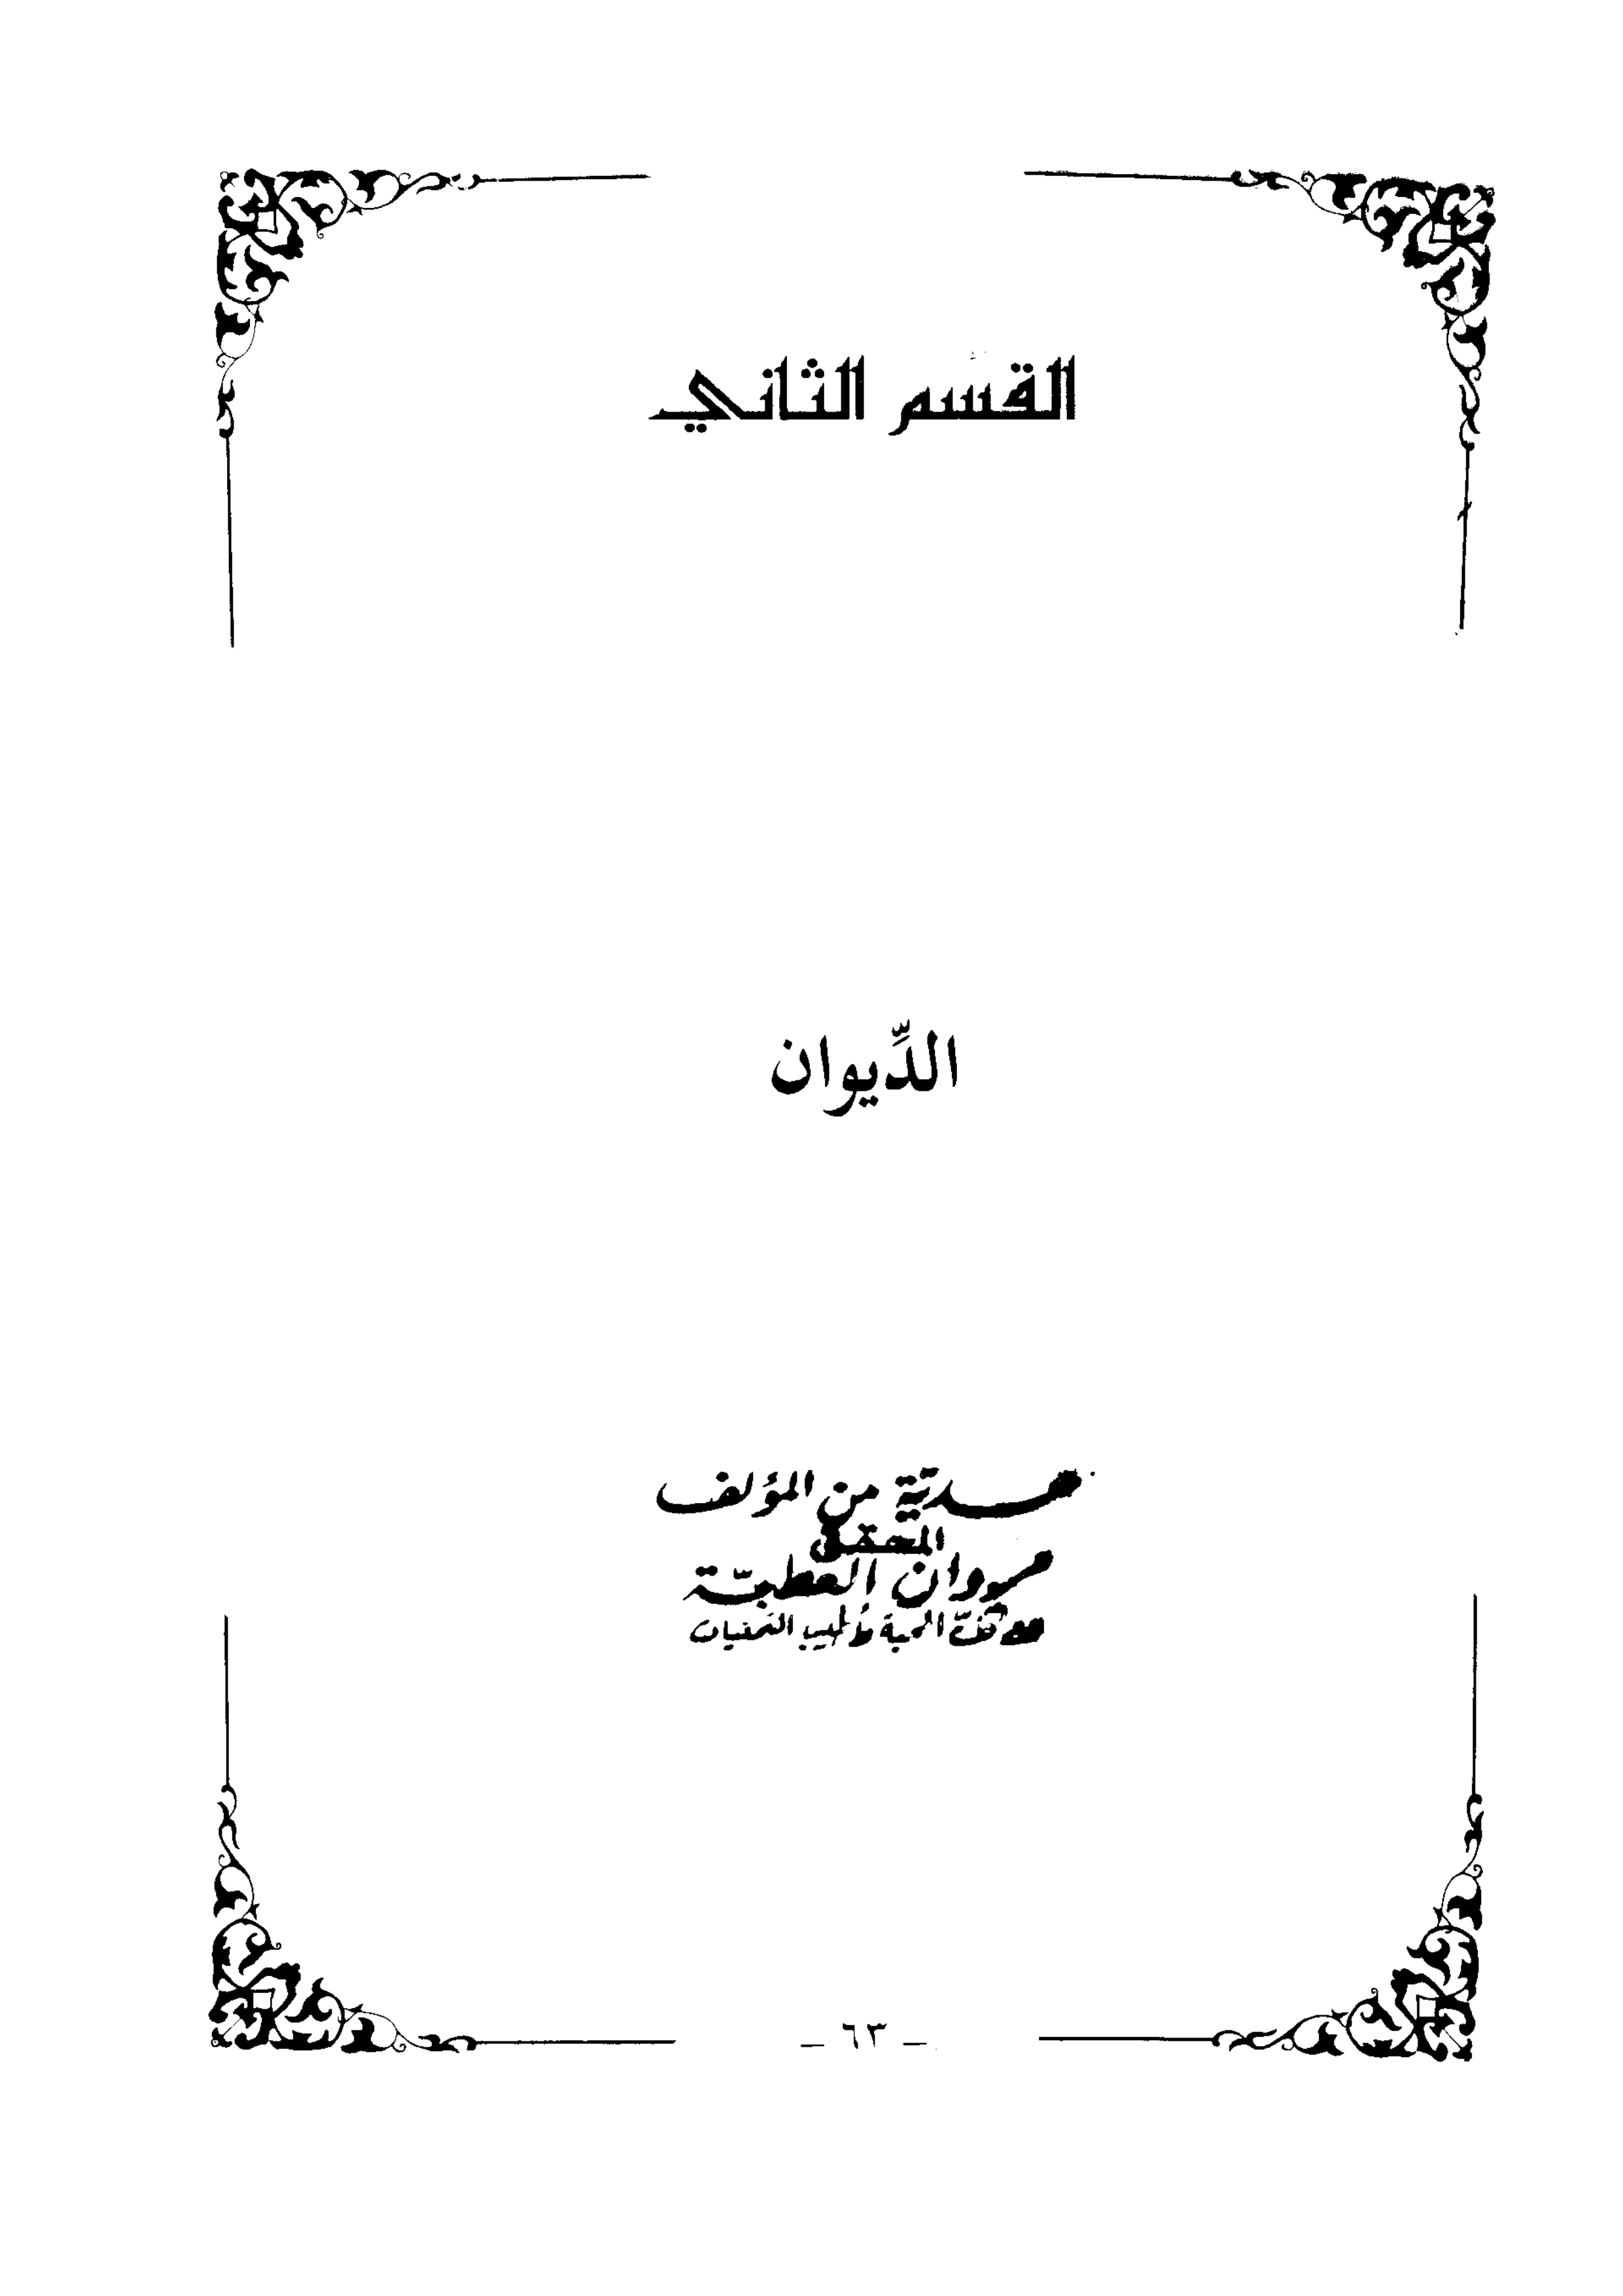 القسم الثاني
الدِّيوان
هديّة من المؤلف
المحقق
مروان العطيّة
مع كل المحبة وأطيب التمنيات
- ٦٣ -